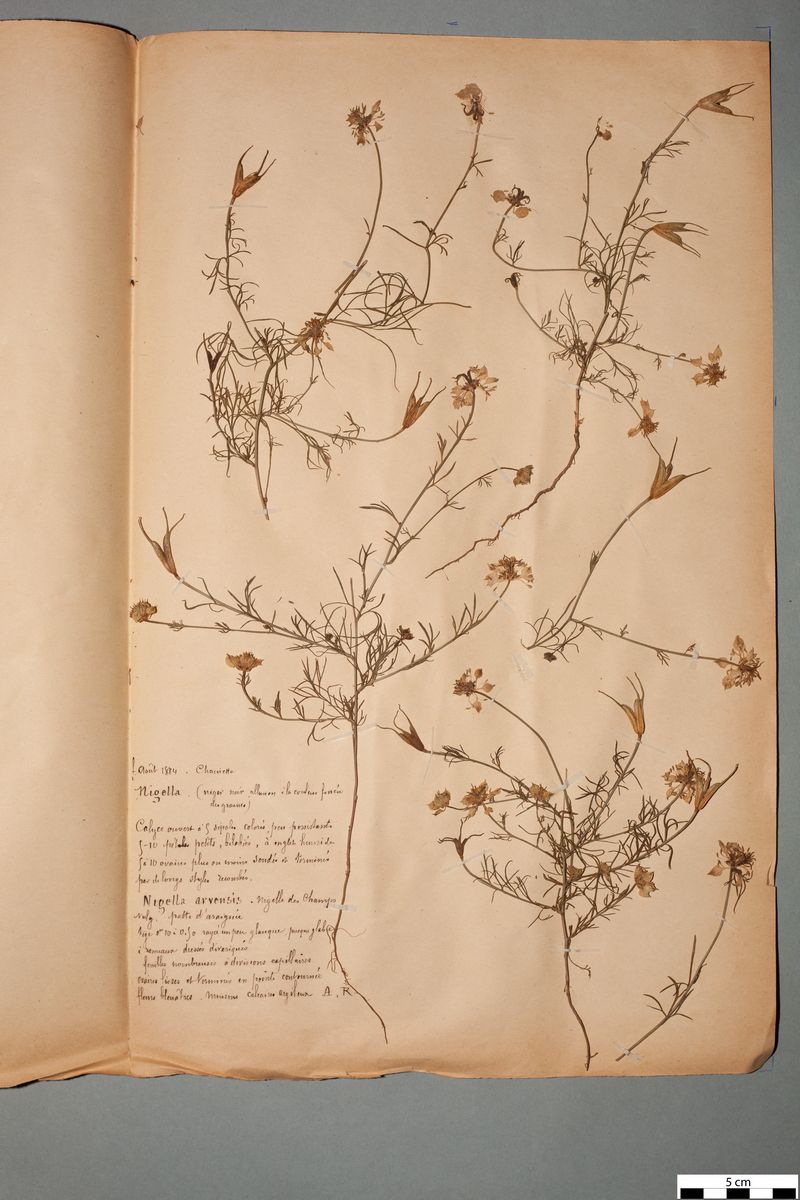 Août 1884. Chaniers
Nigella. (niger noir allusion à la couleur foncée
des graines)
Calyce ouvert à 5 sépales colorés, peu persistants
5-10 pétales petits, bilabiés, à onglet
5 à 10 ovaires plus ou moins soudés et terminés
par de longs styles recourbés.
Nigella arvensis. Nigelle des Champs
vulg. patte d'araignée
tige 0m 10 à 0,30 rayée un peu glauque presque glabre
à rameaux dressés divariqués
feuilles nombreuses à divisions capillaires
ovaires lisses et terminés en pointe contournée
fleurs bleuâtres. moissons calcaires argileux A. R
5 cm